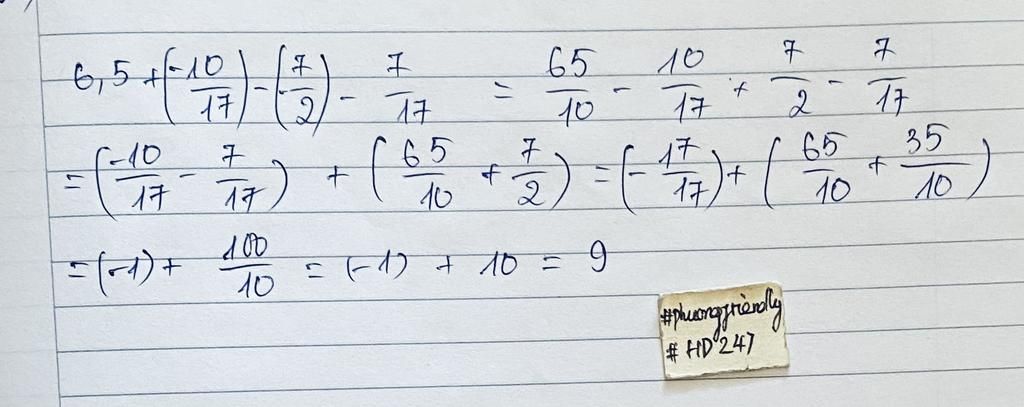 6,5 + (-10/17) - (7/-2) - 7/17 = 65/10 - 10/17 + 7/2 - 7/17
= (-10/17 - 7/17) + (65/10 + 7/2) = (-17/17) + (65/10 + 35/10)
= (-1) + 100/10 = (-1) + 10 = 9
#phuongfriendly
#HD247